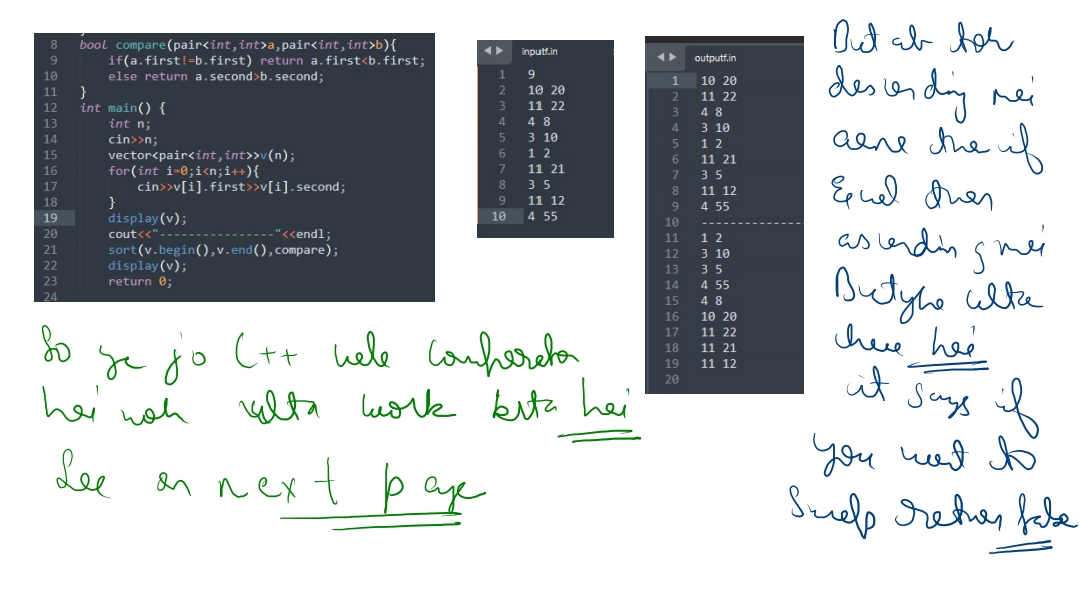 8 bool compare(pair<int,int>a,pair<int,int>b){
9 if(a.first!=b.first) return a.first<b.first;
10 else return a.second>b.second;
11 }
12 int main() {
13 int n;
14 cin>>n;
15 vector<pair<int,int>>v(n);
16 for(int i=0;i<n;i++){
17 cin>>v[i].first>>v[i].second;
18 }
19 display(v);
20 cout<<"----------------"<<endl;
21 sort(v.begin(),v.end(),compare);
22 display(v);
23 return 0;
24
inputf.in
1 9
2 10 20
3 11 22
4 4 8
5 3 10
6 1 2
7 11 21
8 3 5
9 11 12
10 4 55
outputf.in
1 10 20
2 11 22
3 4 8
4 3 10
5 1 2
6 11 21
7 3 5
8 11 12
9 4 55
10 ----------------
11 1 2
12 3 10
13 3 5
14 4 55
15 4 8
16 10 20
17 11 22
18 11 21
19 11 12
20
But ab toh
descending mei
aane the if
Equal then
ascending mei
But ye ulta
hei
it says if
you want to
Swap return false
So ye jo C++ wele Comparator
hei woh ulta work krta hei
See on next page